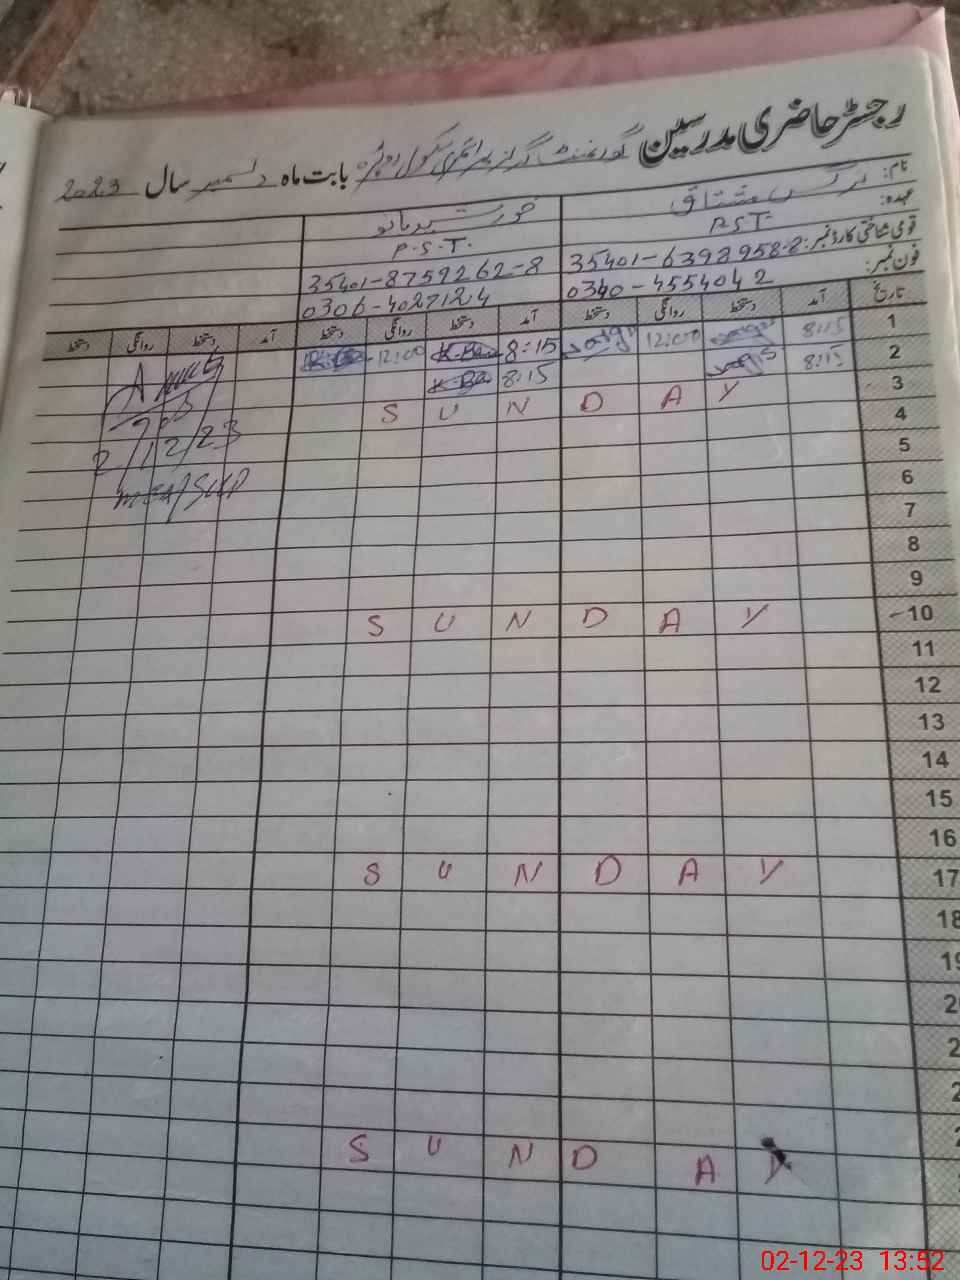 رجسٹر حاضری مدرسین گورنمنٹ گرلز پرائمری سکول بابت ماہ دسمبر سال 2023
نام: نرگس مشتاق خورشید بانو
عہدہ: P.S.T. P.S.T.
قومی شناختی کارڈ نمبر: 35401-6398958-2 35401-8759262-8
فون نمبر: 0340-4554042 0306-4027124
تاریخ آمد دستخط روانگی دستخط آمد دستخط روانگی دستخط آمد دستخط روانگی دستخط
1 8:15 12:00 8:15 K.Ba 12:00
2 8:15 8:15 K.Ba
3 SUNDAY
4
2/12/23
5
MEA/SKP
6
7
8
9
10 SUNDAY
11
12
13
14
15
16
17 SUNDAY
18
19
SUNDAY
02-12-23 13:52